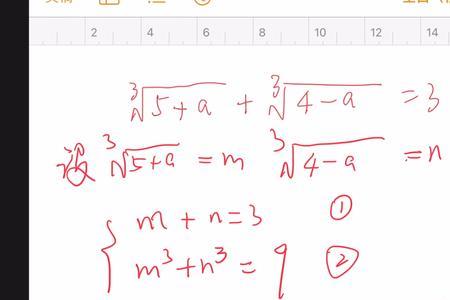 2 4 6 8 10 12 14
∛5+a + ∛4-a = 3
设 ∛5+a = m ∛4-a = n
{ m + n = 3 ①
m³ + n³ = 9 ②